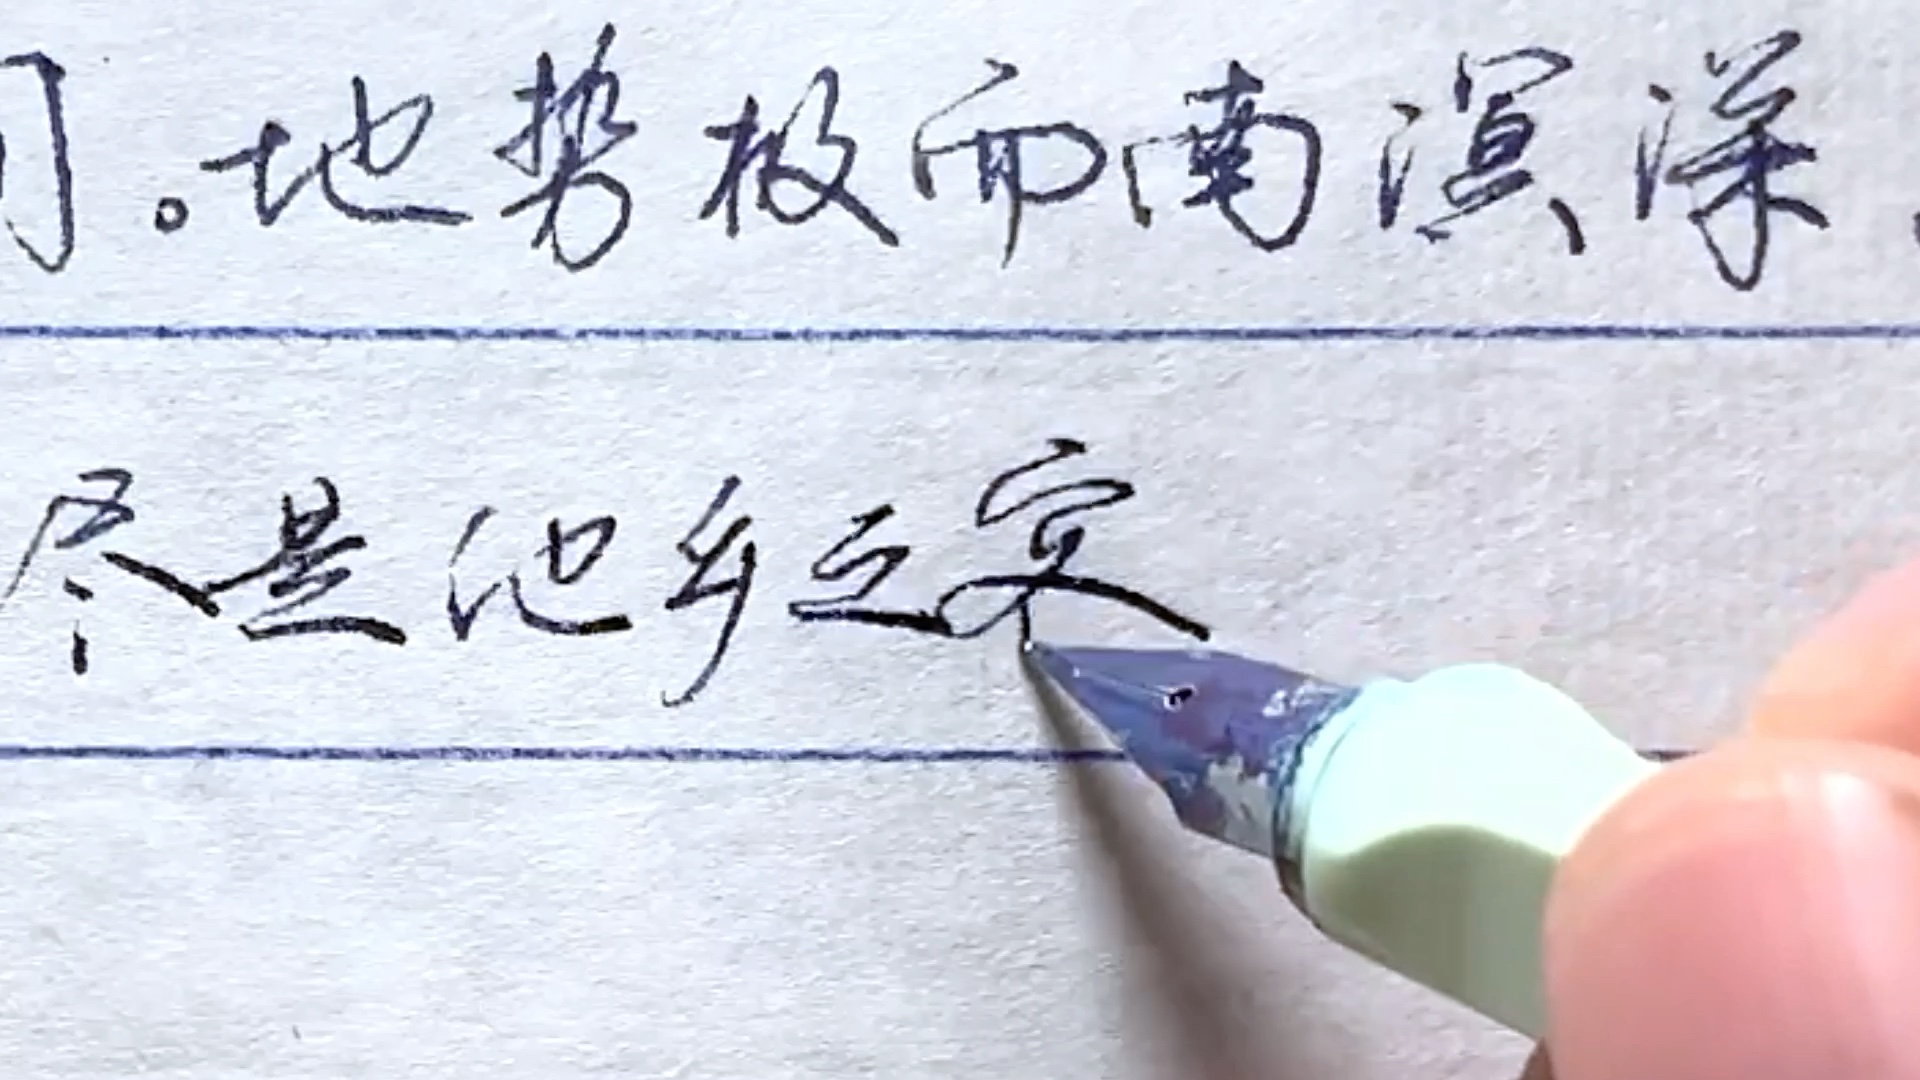 。地势极而南溟深
尽是他乡之客